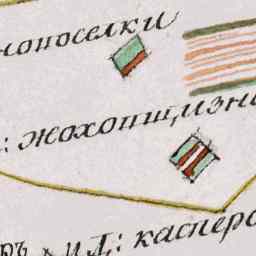 нопоселки
: жохопщизна
ръ и д: касперо